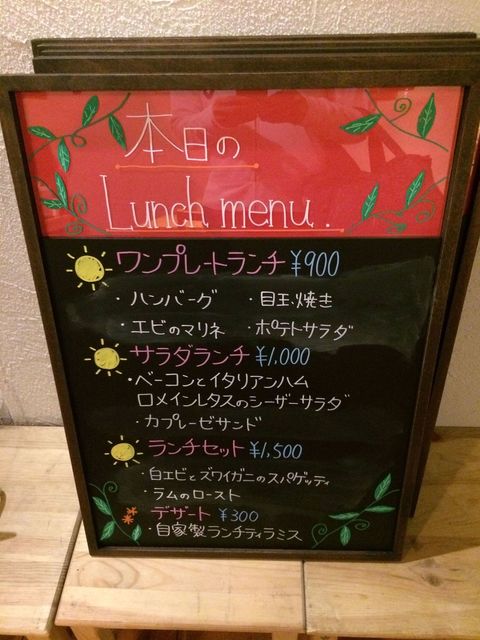 本日の
Lunch menu.
ワンプレートランチ ¥900
・ハンバーグ ・目玉焼き
・エビのマリネ ・ポテトサラダ
サラダランチ ¥1,000
・ベーコンとイタリアンハム
ロメインレタスのシーザーサラダ
・カプレーゼサンド
ランチセット ¥1,500
・白エビとズワイガニのスパゲッティ
・ラムのロースト
デザート ¥300
・自家製ランチティラミス